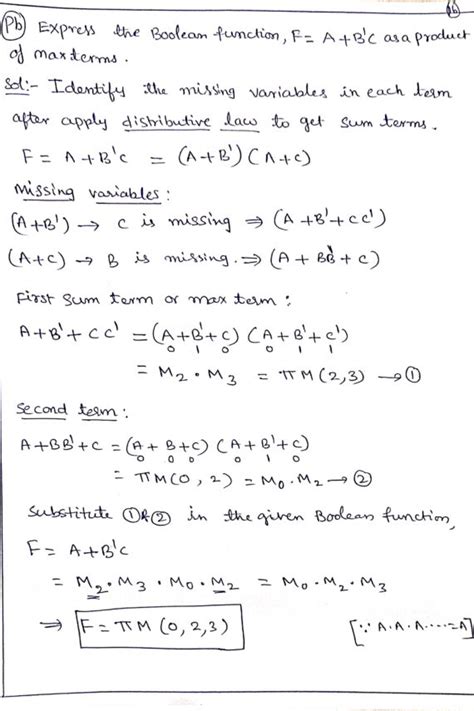 (Pb) Express the Boolean function, F = A + B'C as a product
of maxterms.
Sol:- Identify the missing variables in each term
after apply distributive law to get sum terms.
F = A + B'C = (A+B') (A+C)
Missing variables:
(A+B') → C is missing ⇒ (A + B' + CC')
(A+C) → B is missing. ⇒ (A + BB' + C)
First sum term or max term:
A+B'+CC' = (A+B'+C) (A+B'+C')
0 1 0 0 1 1
= M2 . M3 = πM(2,3) → ①
Second term:
A+BB'+C = (A+B+C) (A+B'+C)
0 0 0 0 1 0
= πM(0, 2) = M0 . M2 → ②
Substitute ①&② in the given Boolean function,
F = A + B'C
= M2 . M3 . M0 . M2 = M0 . M2 . M3
⇒ F = πM (0, 2, 3) [∵ A.A.A.....=A]